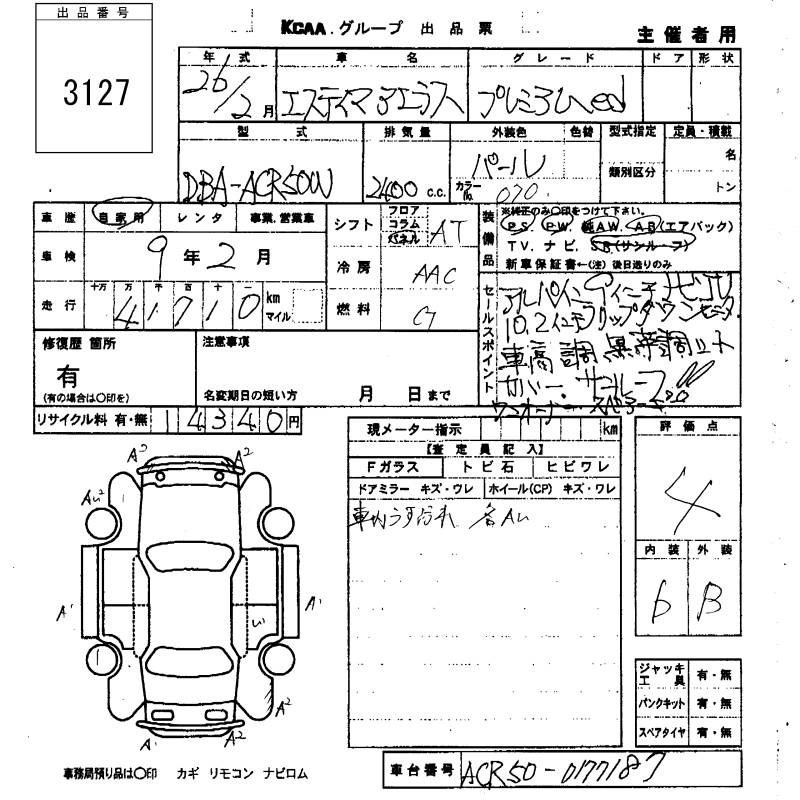 出品番号
3127
KCAA.グループ 出品票
主催者用
年式 車名 グレード ドア 形状
26/2月 エスティマ アエラス プレミアムed
型式 排気量 外装色 色替 型式指定 定員・積載
DBA-ACR50W 2400 c.c. パール カラーNo. 070 類別区分 名
トン
車歴 自家用 レンタ 事業.営業車
車検 9年2月
走行 十万 万 千 百 十 一 km マイル
41710
シフト フロア コラム パネル AT
冷房 AAC
燃料 G
装備品
※純正のみ○印をつけて下さい。
PS. PW. AW. AB(エアバック)
TV. ナビ. SR(サンルーフ)
新車保証書←(注)後日送りのみ
セールスポイント
10.2インチフリップダウンモニター
ワンオーナー
修復歴 箇所
有
(有の場合は○印を)
注意事項
名変期日の短い方 月 日まで
リサイクル料 有・無 14340円
現メーター指示 km
【査定員記入】
Fガラス トビ石 ヒビワレ
ドアミラー キズ・ワレ ホイール(CP) キズ・ワレ
車内うすごれ 各AU
評価点
4
内装 外装
6 B
A2 A2
AU2
A1 A1
A2
A1 A2
ジャッキ工具 有・無
パンクキット 有・無
スペアタイヤ 有・無
事務局預り品は○印 カギ リモコン ナビロム
車台番号 ACR50-0177187